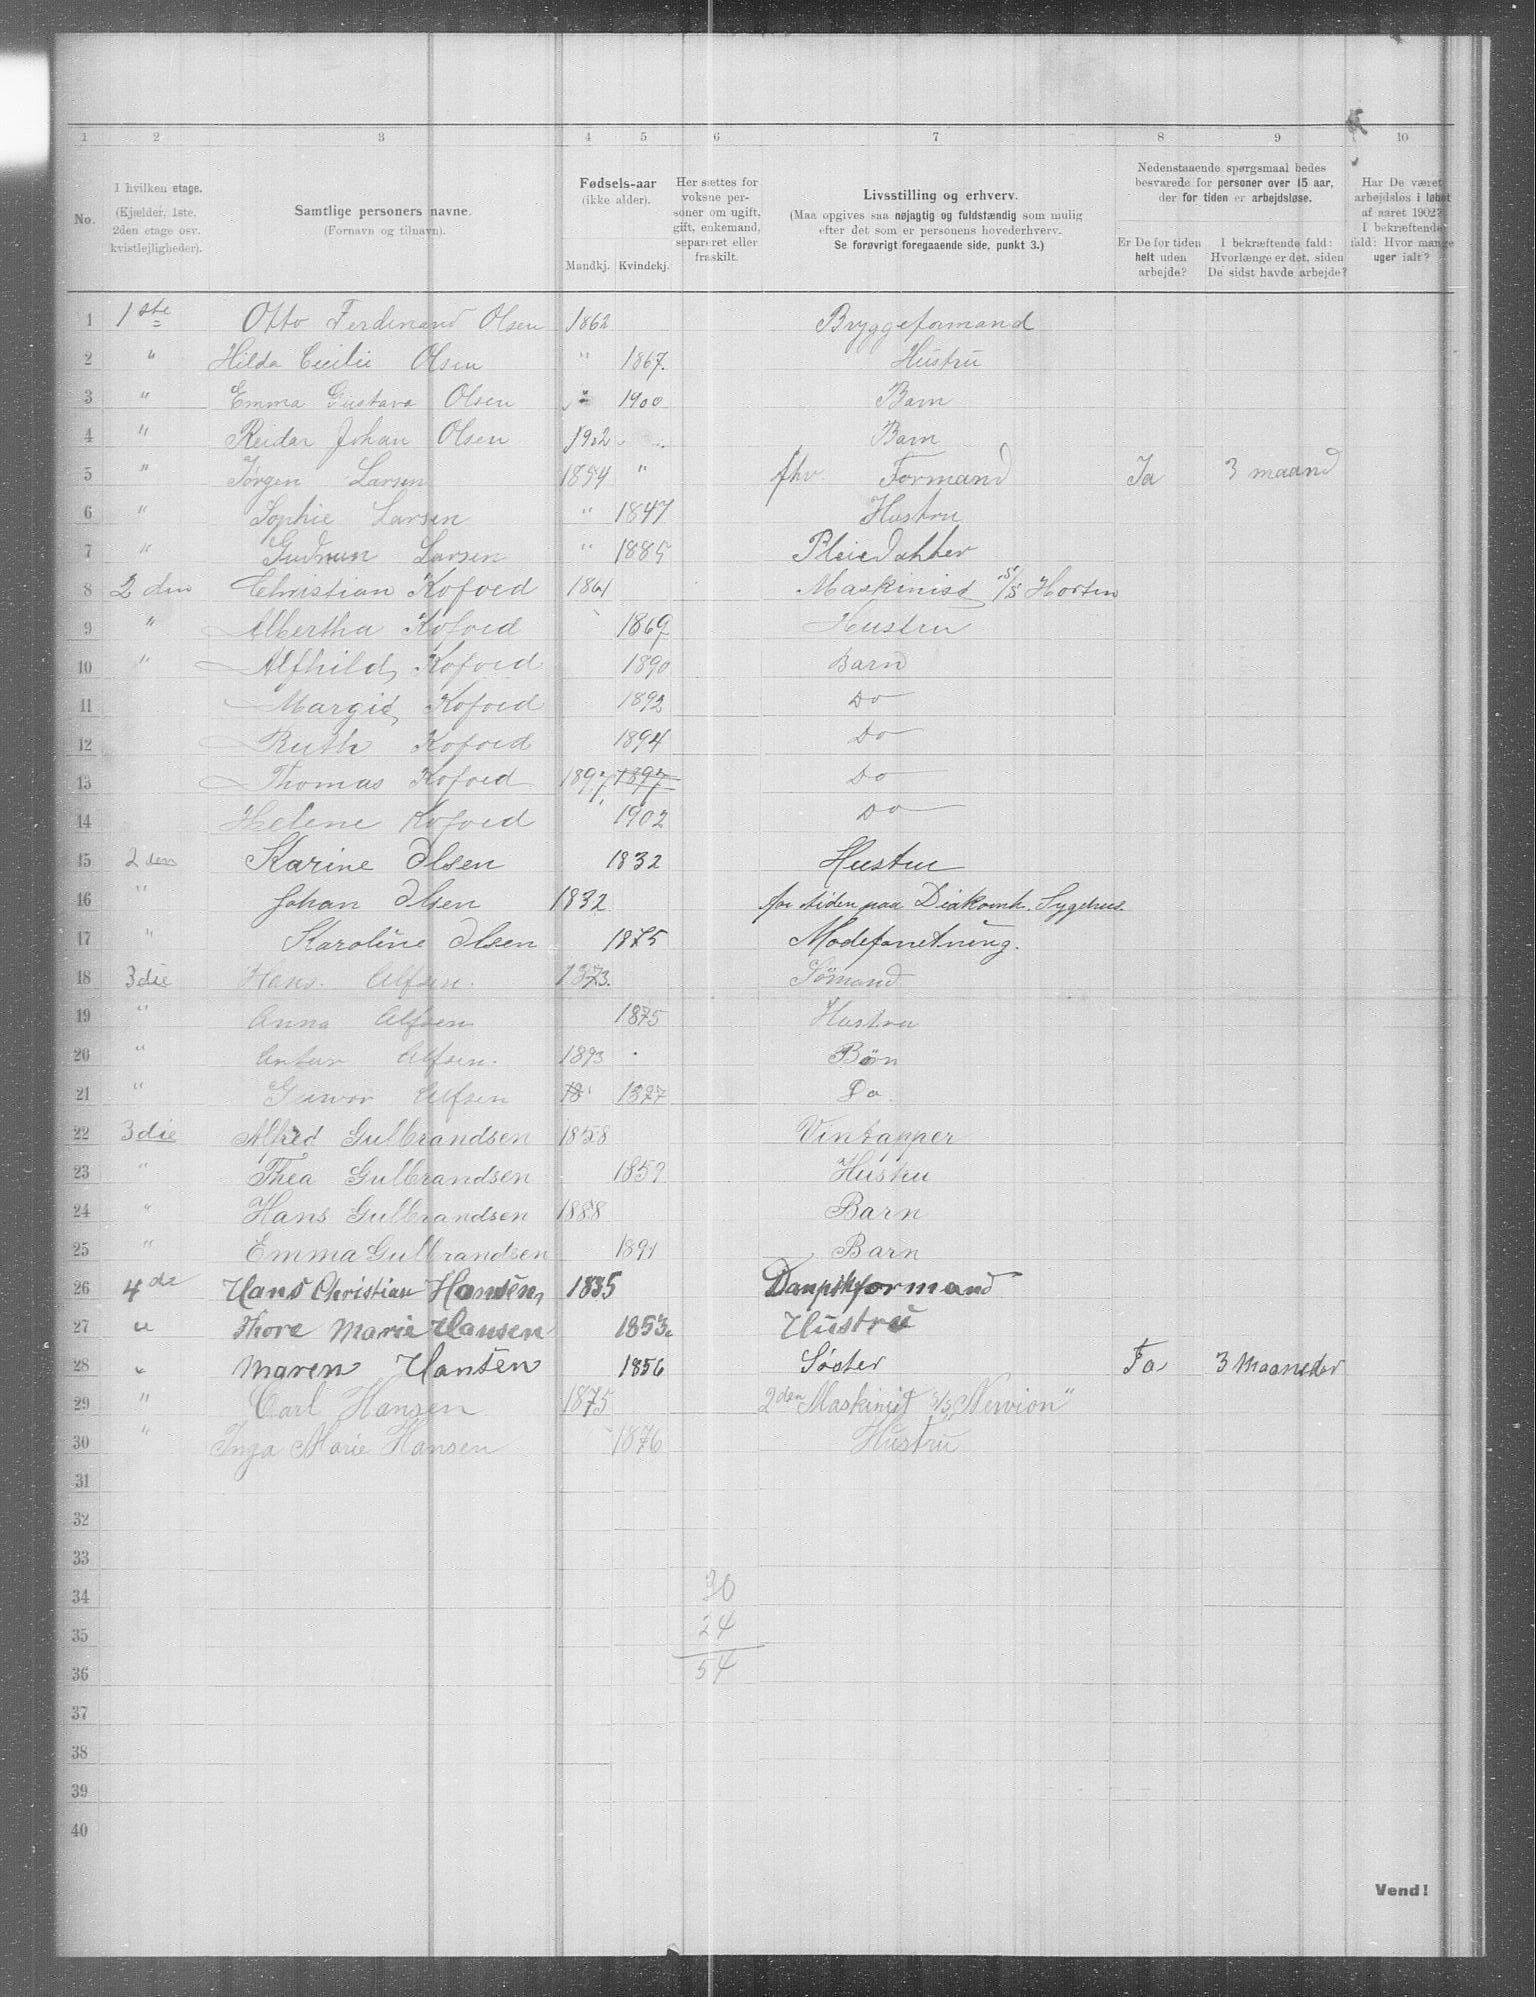 1 2 3 4 5 6 7 8 9 10
No.
I hvilken etage.
(Kjælder, 1ste,
2den etage osv.
kvistlejligheder).
Samtlige personers navne.
(Fornavn og tilnavn).
Fødsels-aar
(ikke alder).
Mandkj. Kvindekj.
Her sættes for
voksne per-
soner om ugift,
gift, enkemand,
separeret eller
fraskilt.
Livsstilling og erhverv.
(Maa opgives saa nøjagtig og fuldstændig som mulig
efter det som er personens hovederhverv.
Se forøvrigt foregaaende side, punkt 3.)
Nedenstaaende spørgsmaal bedes
besvarede for personer over 15 aar,
der for tiden er arbejdsløse.
Er De for tiden
helt uden
arbejde?
I bekræftende fald:
Hvorlænge er det, siden
De sidst havde arbejde?
Har De været
arbejdsløs i løbet
af aaret 1902?
I bekræftende
fald: Hvor mange
uger ialt?
1 1ste Otto Ferdinand Olsen 1862 Bryggeformand
2 " Hilda Cecilie Olsen " 1867. Hustru
3 " Emma Gustava Olsen " 1900 Barn
4 " Reidar Johan Olsen 1902 Barn
5 " Jørgen Larsen 1854 " fhv. Formand Ja 3 maand
6 " Sophie Larsen " 1847 Hustru
7 " Gudrun Larsen " 1885 Pleiedatter
8 2den Christian Kofoed 1861 Maskinist S/S Horten
9 " Albertha Kofoed 1869 Hustru
10 " Alfhild Kofoed 1890 Barn
11 Margid Kofoed 1892 Do
12 Ruth Kofoed 1894 Do
13 Thomas Kofoed 1897 1897 Do
14 Helene Kofoed 1902 Do
15 2den Karine Olsen 1832 Hustru
16 " Johan Olsen 1832 for tiden paa Diakomh. Sygehus.
17 " Karoline Olsen 1875 Modeforretning.
18 3die Hans. Alfsen. 1873. Sømand
19 " Anna Alfsen 1875 Hustru
20 " Antur Alfsen. 1893 Børn
21 " Gunvor Alfsen 18 1897 Do.
22 3die Alfred Gulbrandsen 1858 Vintapper
23 " Thea Gulbrandsen 1859 Hustru
24 " Hans Gulbrandsen 1888 Barn
25 " Emma Gulbrandsen 1891 Barn
26 4de Hans Christian Hansen 1835 Dampskformand
27 " Thore Marie Hansen 1853. Hustru
28 " Maren Hansen 1856 Søster Ja 3 Maaneder
29 " Carl Hansen 1875 2den Maskinist S/S "Newion"
30 " Inga Marie Hansen 1876 Hustru
31
32
33
34 30
35 24
36 54
37
38
39
40
Vend!